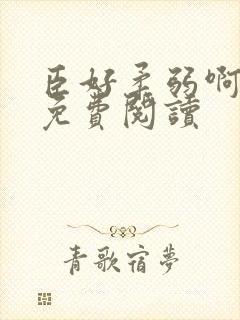 臣好柔弱啊
免費閱讀
青歌宿夢